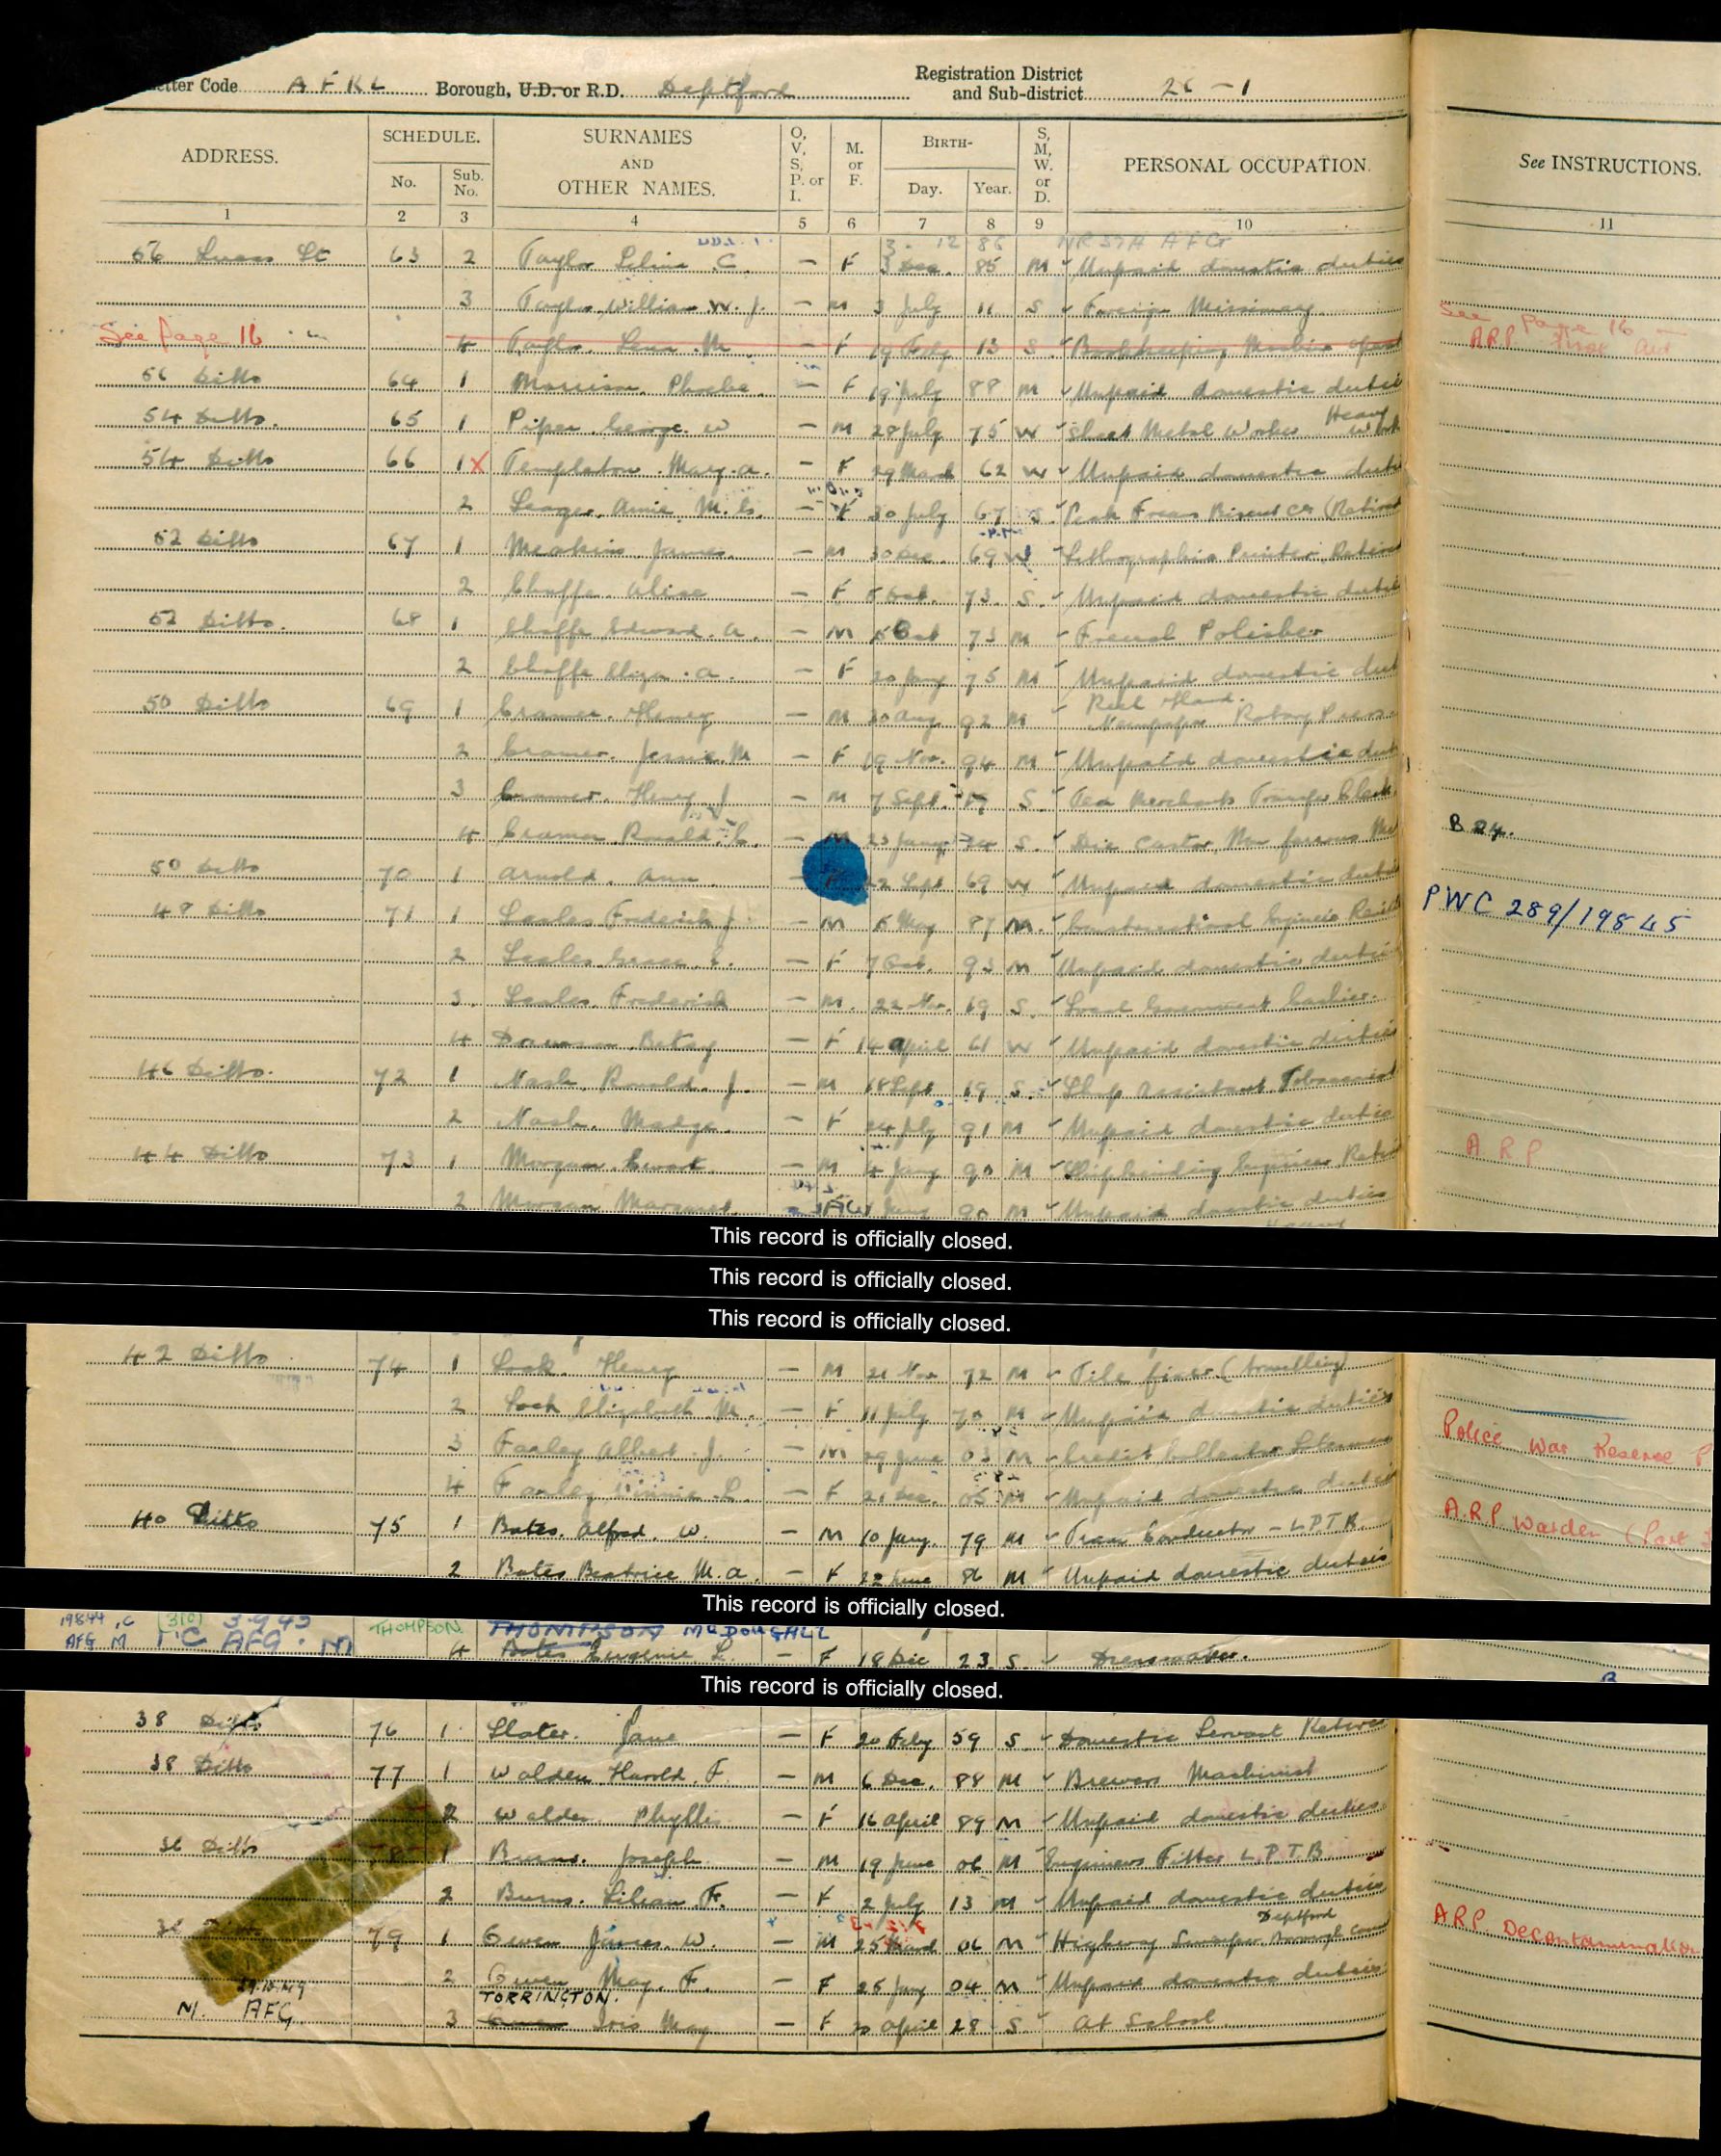 etter Code A F K L Borough, U.D. or R.D. Deptford Registration District and Sub-district 26 - 1
ADDRESS. SCHEDULE. No. Sub. No. SURNAMES AND OTHER NAMES. O, V, S, P. or I. M. or F. BIRTH- Day. Year. S, M, W, or D. PERSONAL OCCUPATION. See INSTRUCTIONS.
1 2 3 4 5 6 7 8 9 10 11
3 12 86
63 2 Taylor C. - F 3 Dec. 85 M Unpaid domestic duties
3 Taylor William W. J. - M 3 July 11 S Foreign Missionary
See page 16 4 Taylor M - F 19 13 S Bookkeeping See page 16 ARP First Aid
56 Ditto 64 1 Morrison Phoebe - F 19 July 88 M Unpaid domestic duties
54 Ditto. 65 1 Piper George W - M 28 July 75 W Sheet Metal Worker Heavy Work
54 Ditto 66 1 X Templeton Mary A. - F 29 March 62 W Unpaid domestic duties
2 Annie M. - F 30 July 67 S. Peak Frean Biscuit (Retired
52 Ditto 67 1 Meakins James - M 30 Dec. 69 W Lithographic Printer Retired
2 Chaffe Alice - F 5 Oct. 73 S. Unpaid domestic duties
52 Ditto. 68 1 Chaffe Edward A. - M 5 Oct 73 M French Polisher
2 Chaffe Eliza A. - F 20 Jany 75 M Unpaid domestic dut
50 Ditto 69 1 Cramer Henry - M 30 Aug 92 M Reel Hand. Newspaper Rotary Press
2 Cramer Jessie M - F 19 Nov. 94 M Unpaid domestic dut
3 Cramer Henry J - M 7 Sept. 19 S. Tea Merchants Transfer Clerk
4 Cramer Ronald C. - M 23 Jany 24 S. Die Caster, Non ferrous Met B 24.
50 Ditto 70 1 Arnold Ann - 22 Sept 69 W Unpaid domestic duties
48 Ditto 71 1 Scales Frederick J. - M 5 May 87 M. Constructional Engineer PWC 289/19845
2 Scales Grace E. - F 7 Oct. 93 M Unpaid domestic duties
3. Scales Frederick - M. 22 Nov. 19 S. Local Government Cashier.
4 Betsy - F 14 April 61 W Unpaid domestic duties
46 Ditto. 72 1 Nash Ronald J. - M 18 Sept 19 S. Shop Assistant Tobacconist
2 Nash Madge - F 24 July 91 M Unpaid domestic duties
44 Ditto 73 1 Morgan Ewart - M 4 Jany 90 M Shipbuilding Engineer Retired A R P
2 Morgan Margaret 90 M Unpaid domestic duties
This record is officially closed.
This record is officially closed.
This record is officially closed.
42 Ditto 74 1 Lock Henry - M 21 Nov 72 M Tile fixer (travelling)
2 Lock Elizabeth M. - F 11 July 70 M Unpaid domestic duties
3 Farley Albert J. - M 29 June 03 M Credit Collector Salesman Police War Reserve P
4 Farley Winnie L. - F 21 Dec. 05 M Unpaid domestic duties
40 Ditto 75 1 Bates Alfred W. - M 10 Jany. 79 M Tram Conductor - L.P.T.B. A.R.P. Warden (Part
2 Bates Beatrice M. A. - F 22 June 86 M Unpaid domestic duties
This record is officially closed.
AFG M THOMPSON THOMPSON McDOUGALL
4 Bates Eugenie L. - F 18 Dec 23 S. Dressmaker.
This record is officially closed.
38 Ditto 76 1 Slater. Jane - F 20 Feby 59 S. Domestic Servant Retired
38 Ditto 77 1 Walden Harold F. - M 6 Dec. 88 M Brewers Machinist
2 Walden Phyllis - F 16 April 89 M Unpaid domestic duties
36 Ditto 1 Burns. Joseph - M 19 June 06 M Engineers Fitter L.P.T.B.
2 Burns. Lilian F. - F 2 July 13 M Unpaid domestic duties
36 79 1 Gwen James W. - M 25 March 06 M Highway Sweeper Deptford Borough Coun ARP Decontamination
2 Gwen May F. - F 25 Jany 04 M Unpaid domestic duties
M. AFG. TORRINGTON.
3 Gwen Iris May - F 20 April 28 S. At School